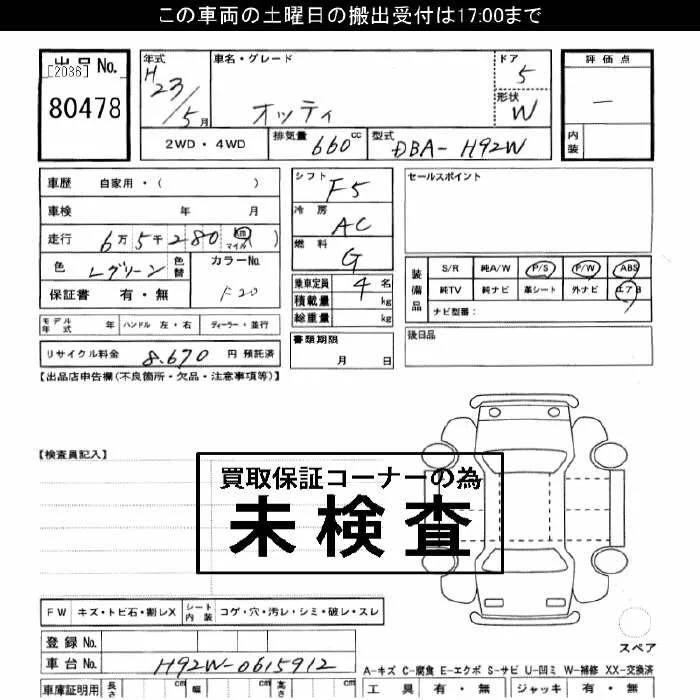 この車両の土曜日の搬出受付は17:00まで
出品 No.
[2036]
80478
年式
H23/5月
車名・グレード
オッティ
ドア
5
形状
W
評価点
―
内装
2WD・4WD
排気量 660 cc
型式 DBA-H92W
車歴 自家用・( )
車検 年 月
走行 6万5千280 km マイル ( )
色 Lグリーン 色替
カラーNo. F20
保証書 有・無
シフト F5
冷房 AC
燃料 G
乗車定員 4 名
積載量 kg
総重量 kg
セールスポイント
装備品
S/R 純A/W P/S P/W ABS
純TV 純ナビ 革シート 外ナビ エアB
ナビ型番:
モデル年式 年 ハンドル 左・右 ディーラー・並行
書類期限
月 日
後日品
リサイクル料金 8.670 円 預託済
【出品店申告欄(不良箇所・欠品・注意事項等)】
【検査員記入】
買取保証コーナーの為
未検査
FW キズ・トビ石・割レX シート内装 コゲ・穴・汚レ・シミ・破レ・スレ
登録 No.
車台 No. H92W-0615912
スペア
A-キズ C-腐食 E-エクボ S-サビ U-凹ミ W-補修 XX-交換済
車庫証明用 長さ cm 幅 cm 高さ cm
工具 有・無 ジャッキ 有・無